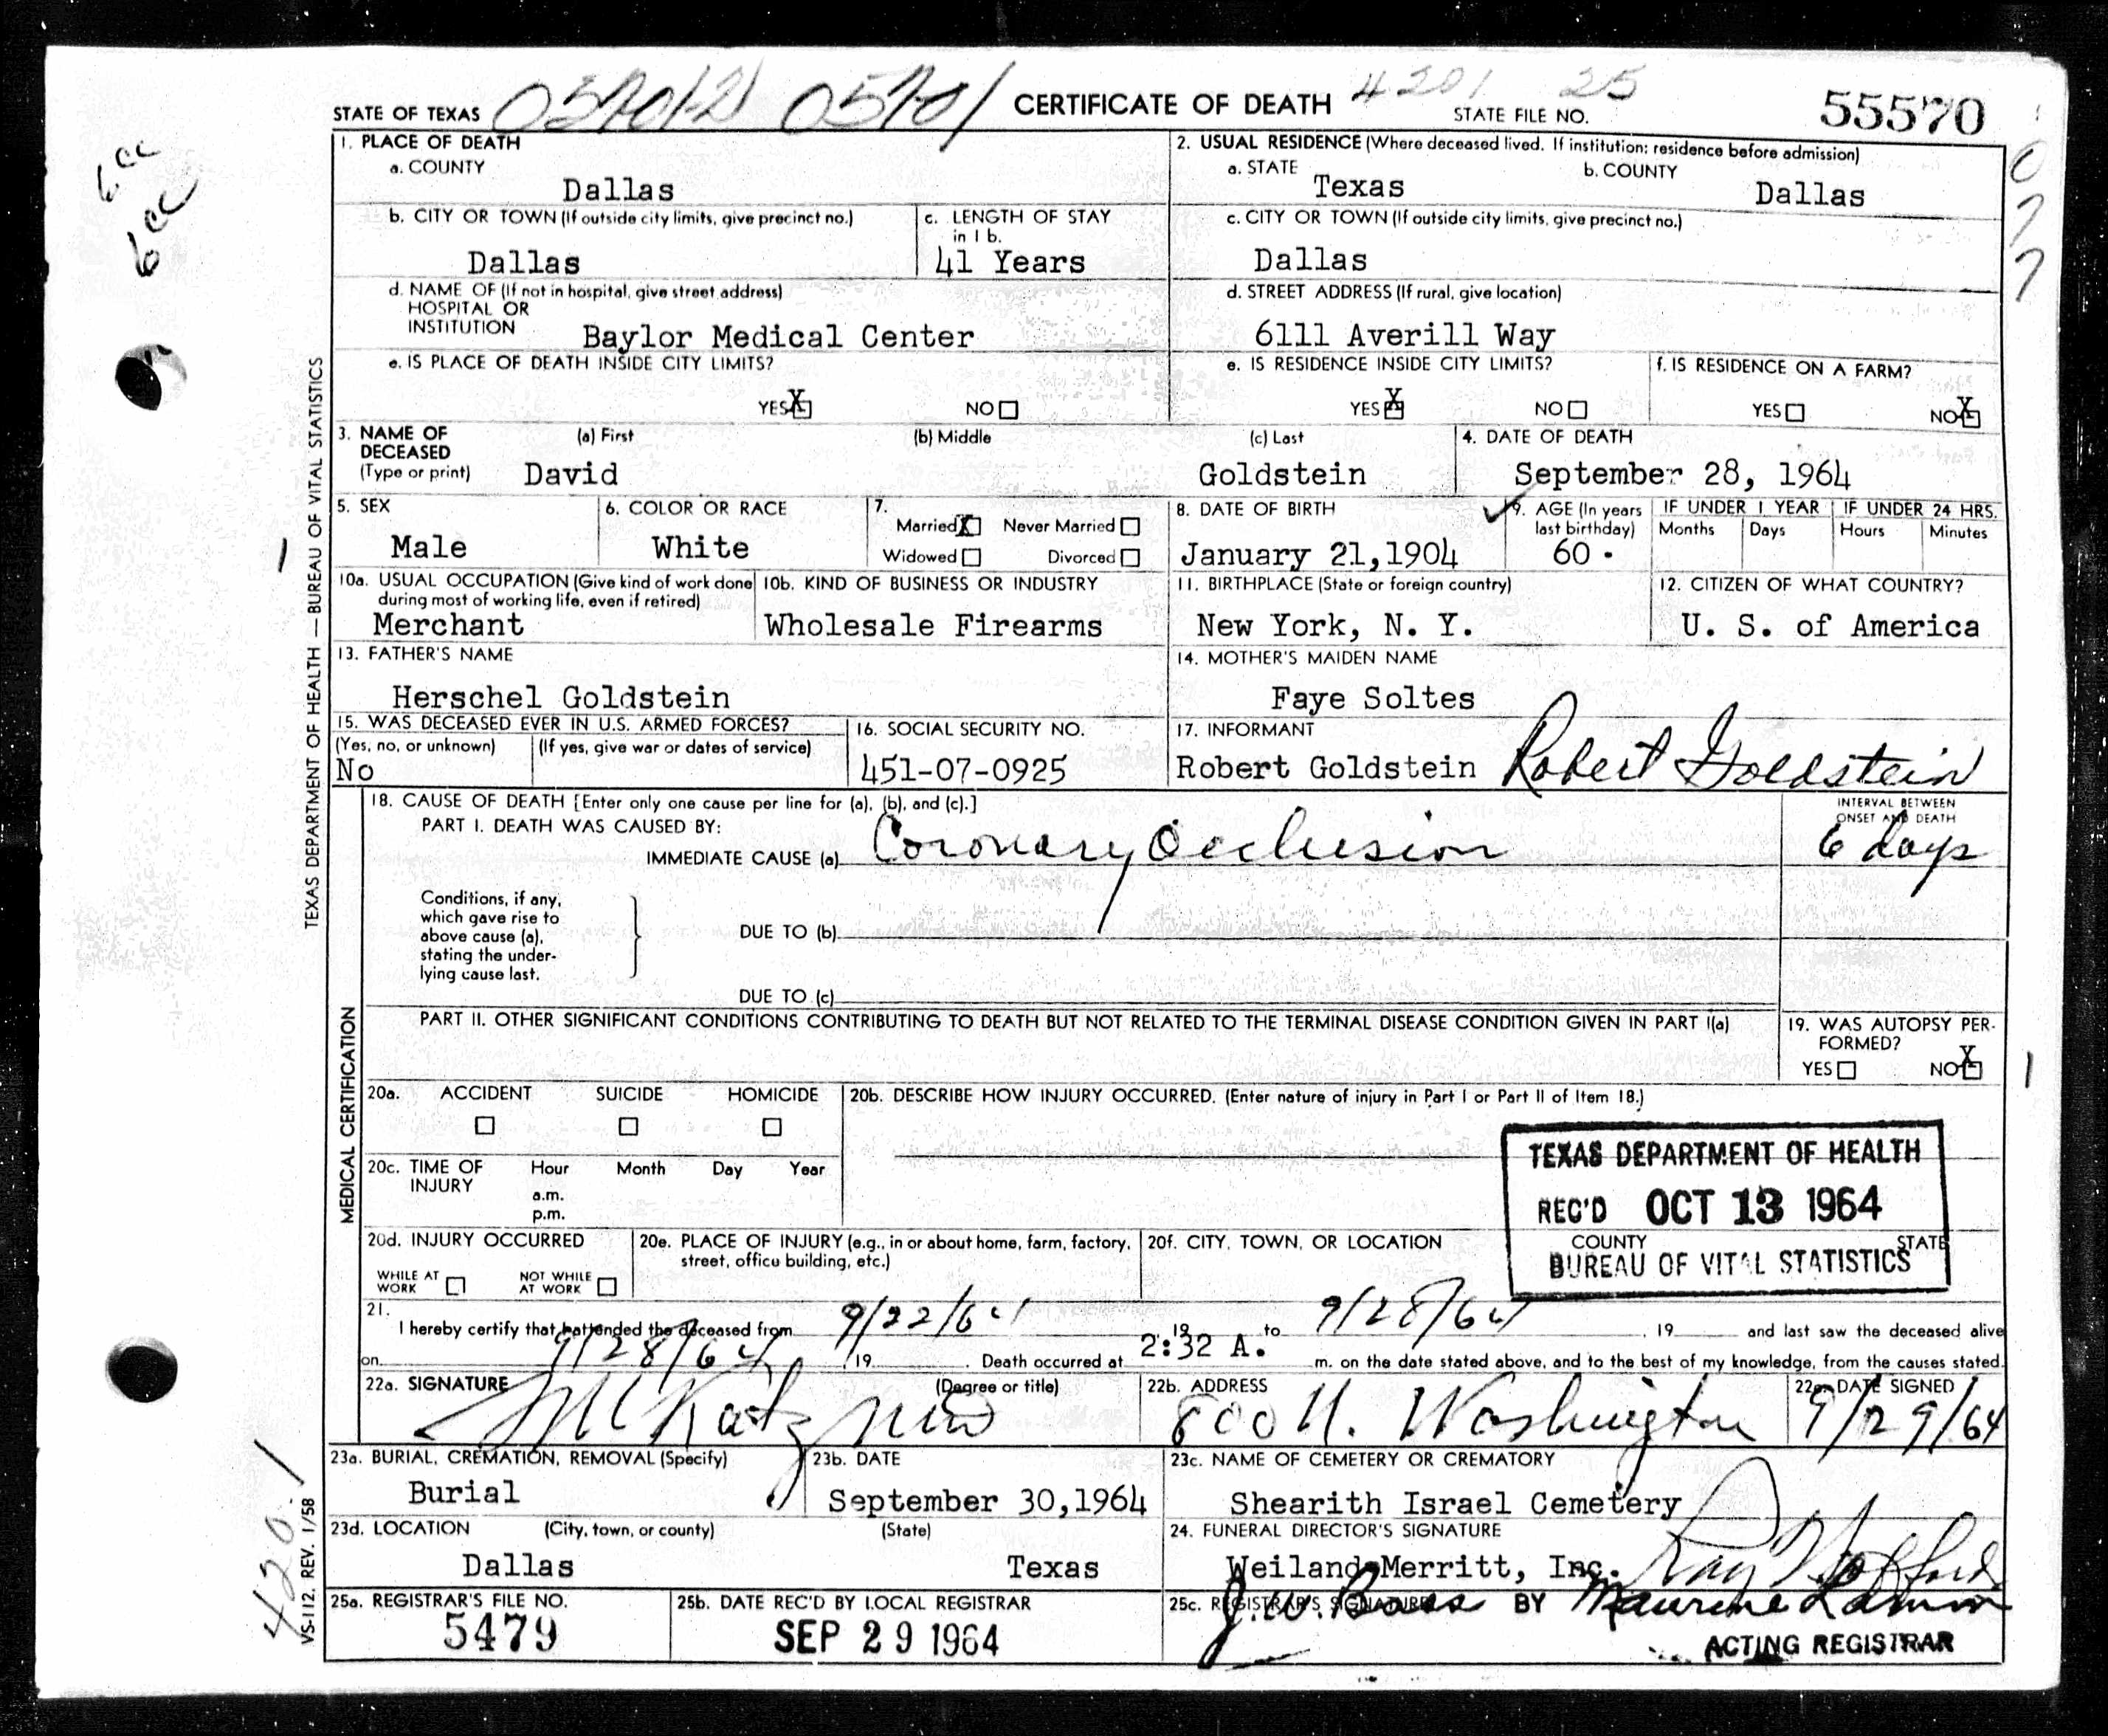 STATE OF TEXAS CERTIFICATE OF DEATH 4201 25 STATE FILE NO. 55570
1. PLACE OF DEATH
a. COUNTY
Dallas
2. USUAL RESIDENCE (Where deceased lived. If institution: residence before admission)
a. STATE Texas b. COUNTY Dallas
b. CITY OR TOWN (If outside city limits, give precinct no.)
Dallas
c. LENGTH OF STAY
in 1 b.
41 Years
c. CITY OR TOWN (If outside city limits, give precinct no.)
Dallas
d. NAME OF (If not in hospital, give street address)
HOSPITAL OR
INSTITUTION Baylor Medical Center
d. STREET ADDRESS (If rural, give location)
6111 Averill Way
e. IS PLACE OF DEATH INSIDE CITY LIMITS?
YES X NO
e. IS RESIDENCE INSIDE CITY LIMITS?
YES X NO
f. IS RESIDENCE ON A FARM?
YES NO X
3. NAME OF DECEASED
(Type or print)
(a) First (b) Middle (c) Last
David Goldstein
4. DATE OF DEATH
September 28, 1964
5. SEX
Male
6. COLOR OR RACE
White
7.
Married X Never Married
Widowed Divorced
8. DATE OF BIRTH
January 21,1904
9. AGE (In years
last birthday)
60
IF UNDER 1 YEAR IF UNDER 24 HRS.
Months Days Hours Minutes
10a. USUAL OCCUPATION (Give kind of work done
during most of working life, even if retired)
Merchant
10b. KIND OF BUSINESS OR INDUSTRY
Wholesale Firearms
11. BIRTHPLACE (State or foreign country)
New York, N. Y.
12. CITIZEN OF WHAT COUNTRY?
U. S. of America
13. FATHER'S NAME
Herschel Goldstein
14. MOTHER'S MAIDEN NAME
Faye Soltes
15. WAS DECEASED EVER IN U.S. ARMED FORCES?
(Yes, no, or unknown) (If yes, give war or dates of service)
No
16. SOCIAL SECURITY NO.
451-07-0925
17. INFORMANT
Robert Goldstein Robert Goldstein
18. CAUSE OF DEATH [Enter only one cause per line for (a), (b), and (c).]
PART I. DEATH WAS CAUSED BY:
IMMEDIATE CAUSE (a) Coronary Occlusion
INTERVAL BETWEEN
ONSET AND DEATH
6 days
Conditions, if any,
which gave rise to
above cause (a),
stating the under-
lying cause last.
DUE TO (b)
DUE TO (c)
PART II. OTHER SIGNIFICANT CONDITIONS CONTRIBUTING TO DEATH BUT NOT RELATED TO THE TERMINAL DISEASE CONDITION GIVEN IN PART I(a)
19. WAS AUTOPSY PER-
FORMED?
YES NO X
20a. ACCIDENT SUICIDE HOMICIDE
20b. DESCRIBE HOW INJURY OCCURRED. (Enter nature of injury in Part I or Part II of Item 18.)
20c. TIME OF
INJURY
Hour Month Day Year
a.m.
p.m.
TEXAS DEPARTMENT OF HEALTH
REC'D OCT 13 1964
BUREAU OF VITAL STATISTICS
20d. INJURY OCCURRED
WHILE AT
WORK
NOT WHILE
AT WORK
20e. PLACE OF INJURY (e.g., in or about home, farm, factory,
street, office building, etc.)
20f. CITY, TOWN, OR LOCATION COUNTY STATE
21.
I hereby certify that I attended the deceased from 9/22/64 19 to 9/28/64, 19 and last saw the deceased alive
on 9/28/64, 19 . Death occurred at 2:32 A. m. on the date stated above, and to the best of my knowledge, from the causes stated.
22a. SIGNATURE (Degree or title)
Katz MD
22b. ADDRESS
800 N. Washington
22c. DATE SIGNED
9/29/64
23a. BURIAL, CREMATION, REMOVAL (Specify)
Burial
23b. DATE
September 30,1964
23c. NAME OF CEMETERY OR CREMATORY
Shearith Israel Cemetery
23d. LOCATION (City, town, or county) (State)
Dallas Texas
24. FUNERAL DIRECTOR'S SIGNATURE
Weiland-Merritt, Inc.
25a. REGISTRAR'S FILE NO.
5479
25b. DATE REC'D BY LOCAL REGISTRAR
SEP 29 1964
25c. REGISTRAR'S SIGNATURE
J.W. Bass BY Maurine Lamm
ACTING REGISTRAR
TEXAS DEPARTMENT OF HEALTH — BUREAU OF VITAL STATISTICS
MEDICAL CERTIFICATION
VS-112. REV. 1/58
420.1
6cc
6cc
077
1
1